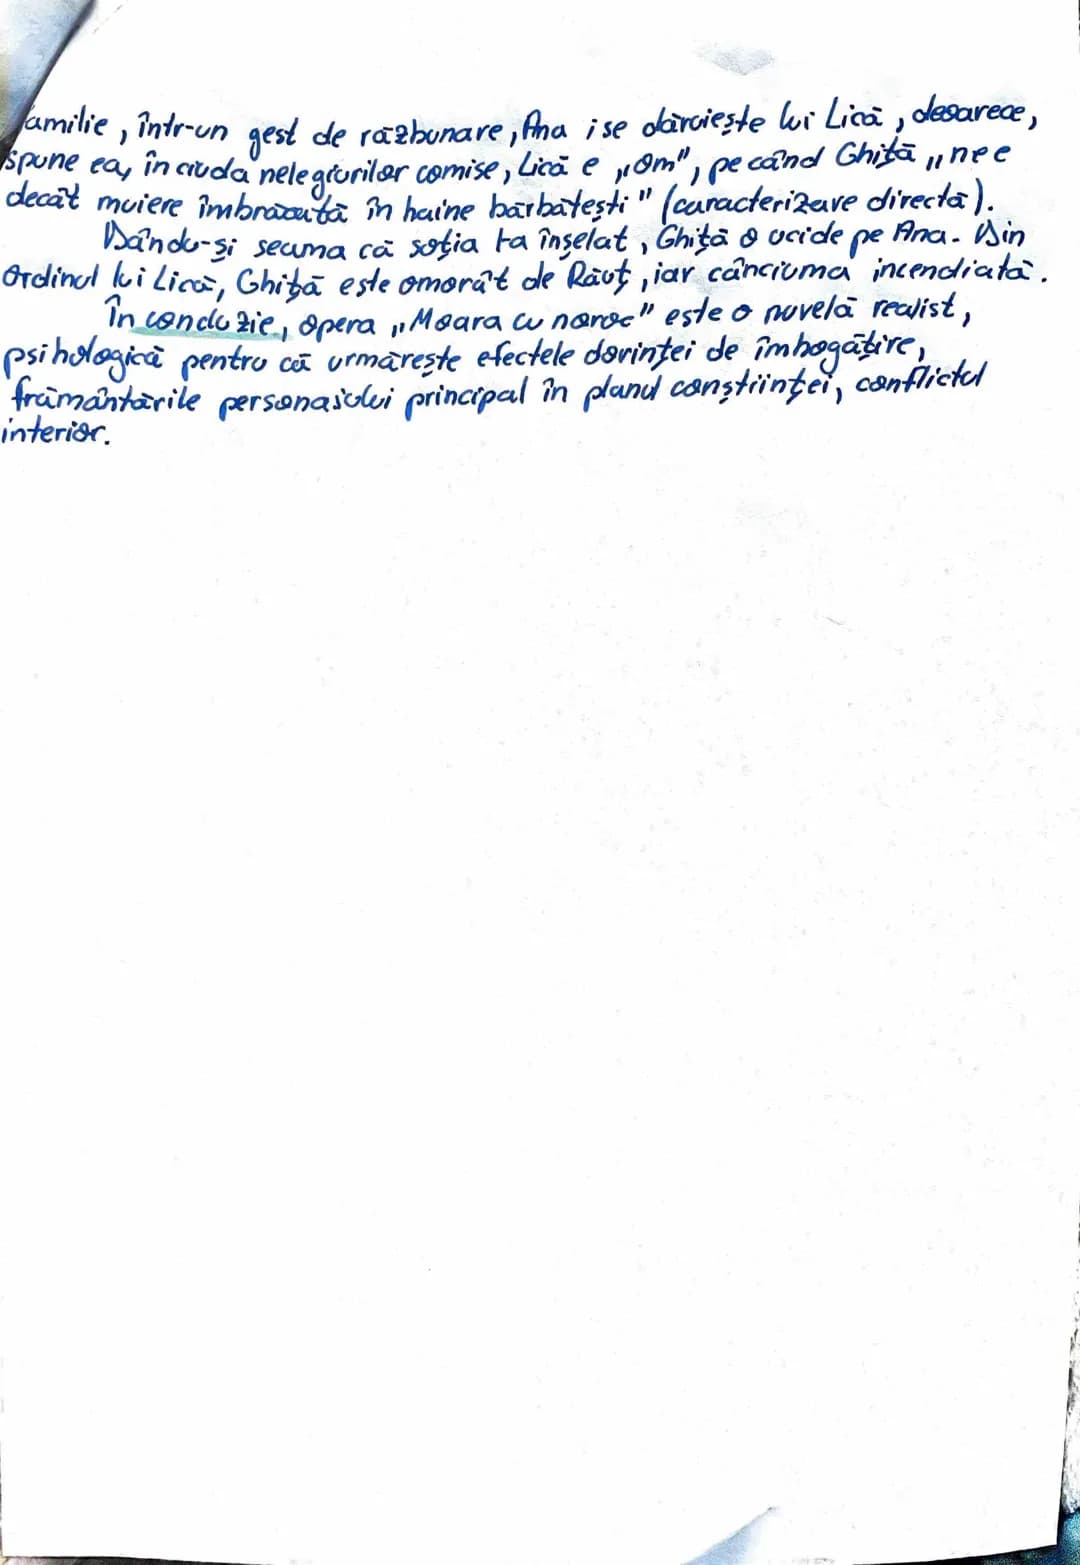 familie, într-un gest de răzbunare, Ana i se dăruiește lui Lică, deoarece,
spune ea, în ciuda nelegiurilor comise, Lică e „om", pe când Ghiță „nu e
decât muiere îmbrăcată în haine bărbătești" (caracterizare directă).
Dându-și seama că soția l-a înșelat, Ghiță o ucide pe Ana. Din
ordinul lui Lică, Ghiță este omorât de Răuț, iar cânciuma incendiată.
În concluzie, opera „Moara cu noroc" este o nuvelă realist,
psihologică pentru că urmărește efectele dorinței de îmbogățire,
frământările personajului principal în planul conștiinței, conflictul
interior.